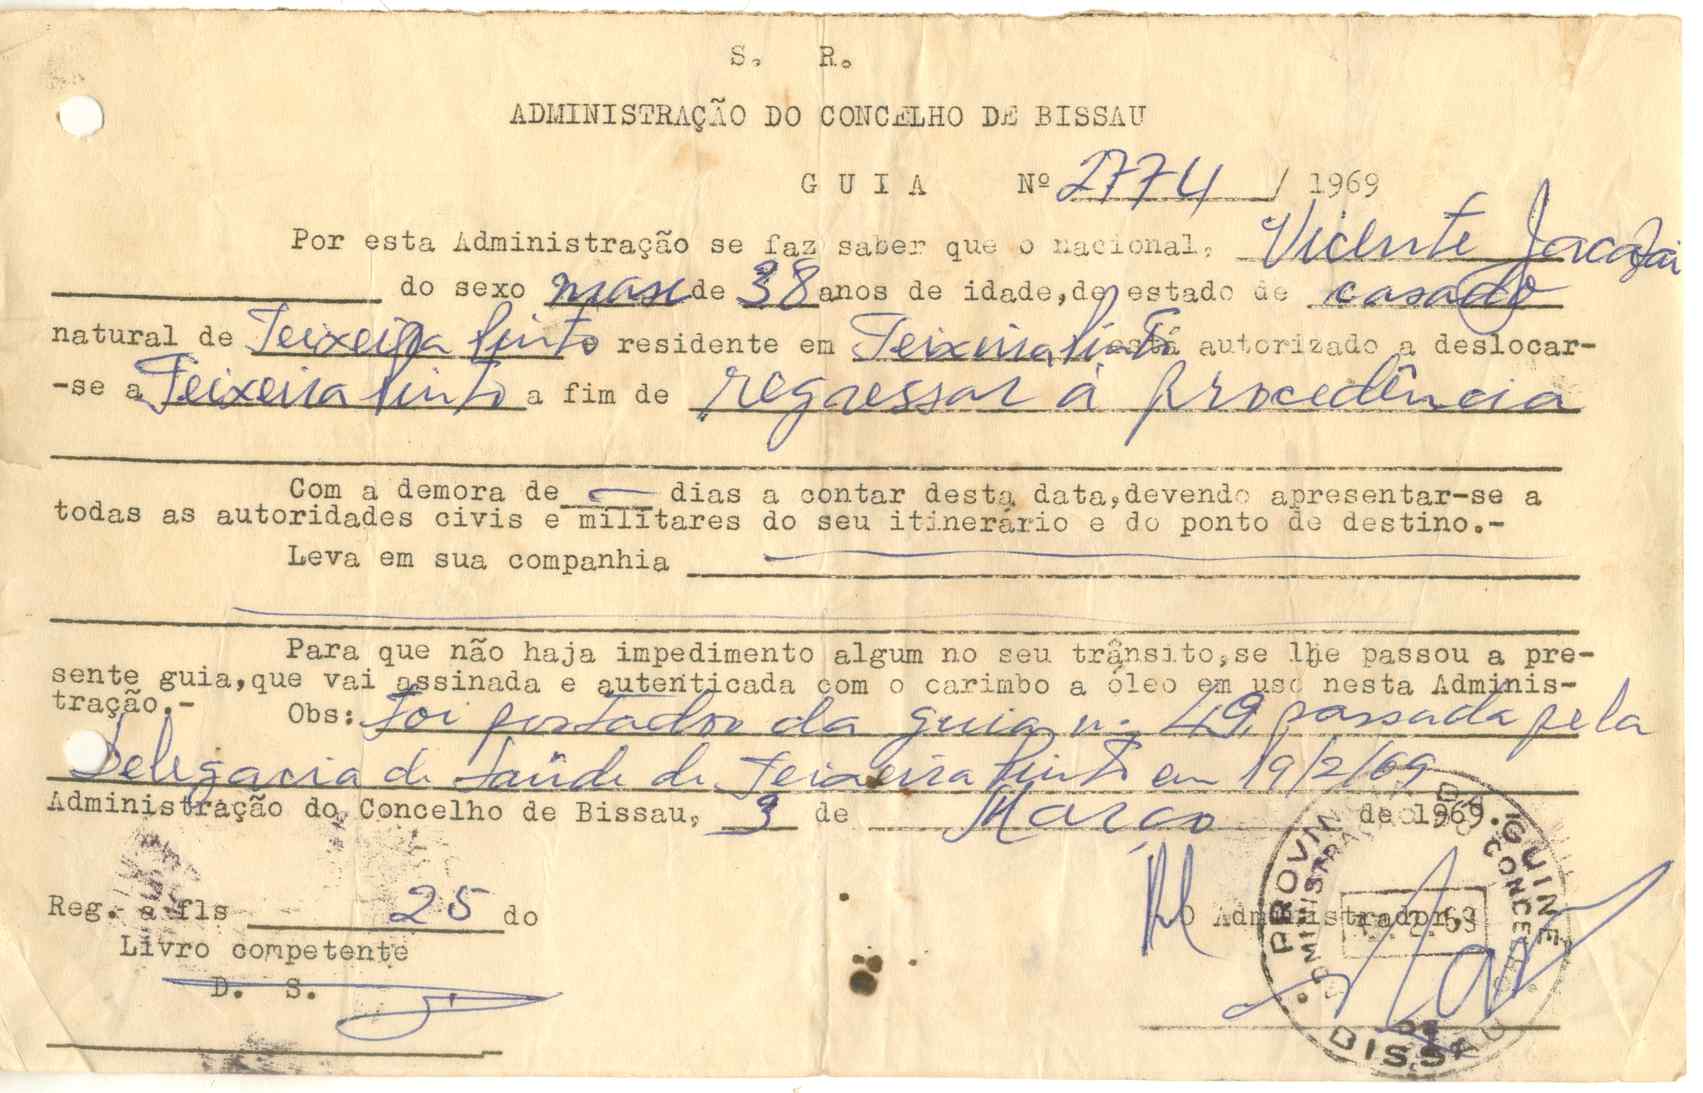 S. R.
ADMINISTRAÇÃO DO CONCELHO DE BISSAU
GUIA Nº 2774 / 1969
Por esta Administração se faz saber que o nacional, Vicente
do sexo masc de 38 anos de idade, de estado de casado
natural de Teixeira Pinto residente em Teixeira Pinto está autorizado a deslocar-
-se a Teixeira Pinto a fim de regressar à procedência
Com a demora de — dias a contar desta data, devendo apresentar-se a
todas as autoridades civis e militares do seu itinerário e do ponto de destino.-
Leva em sua companhia
Para que não haja impedimento algum no seu trânsito, se lhe passou a pre-
sente guia, que vai assinada e autenticada com o carimbo a óleo em uso nesta Adminis-
tração.- Obs: Foi portador da guia n. 49, passada pela
Delegacia de Saúde de Teixeira Pinto em 19/2/69
Administração do Concelho de Bissau, 3 de Março de 1969.
Reg. a fls 25 do
O Administrador,
Livro competente
D. S.
PROVIN DA GUINÉ
ADMINISTRAÇÃO DO CONCELHO
DE
BISSAU